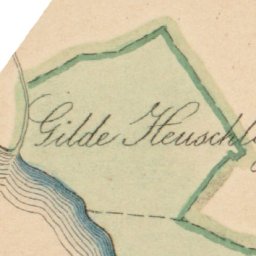 Gilde Heuschlag